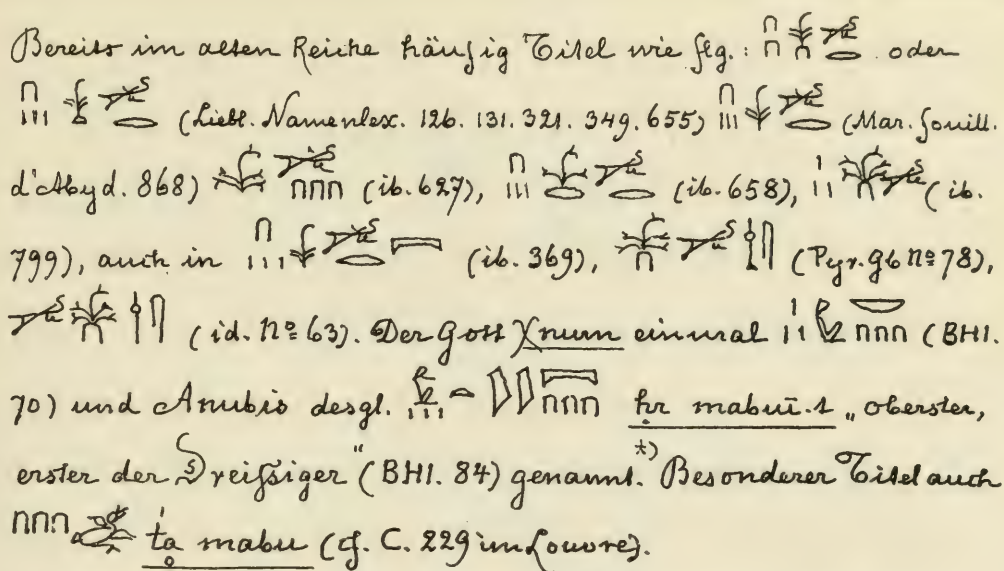 Bereits im alten Reiche häufig Titel wie flg.: oder
(Liebl. Namenlex. 126. 131. 321. 349. 655) (Mar. fouill.
d'Abyd. 868) (ib. 627), (ib. 658), (ib.
799), auch in (ib. 369), (Pyr. gb nº 78),
(id. Nº 63). Der Gott Xnum einmal (BHI.
70) und Anubis desgl. ḥr mabuī.t „oberster,
erster der Dreißiger" (BHI. 84) genannt. *) Besonderer Titel auch
mabu (cf. C. 229 im Louvre).